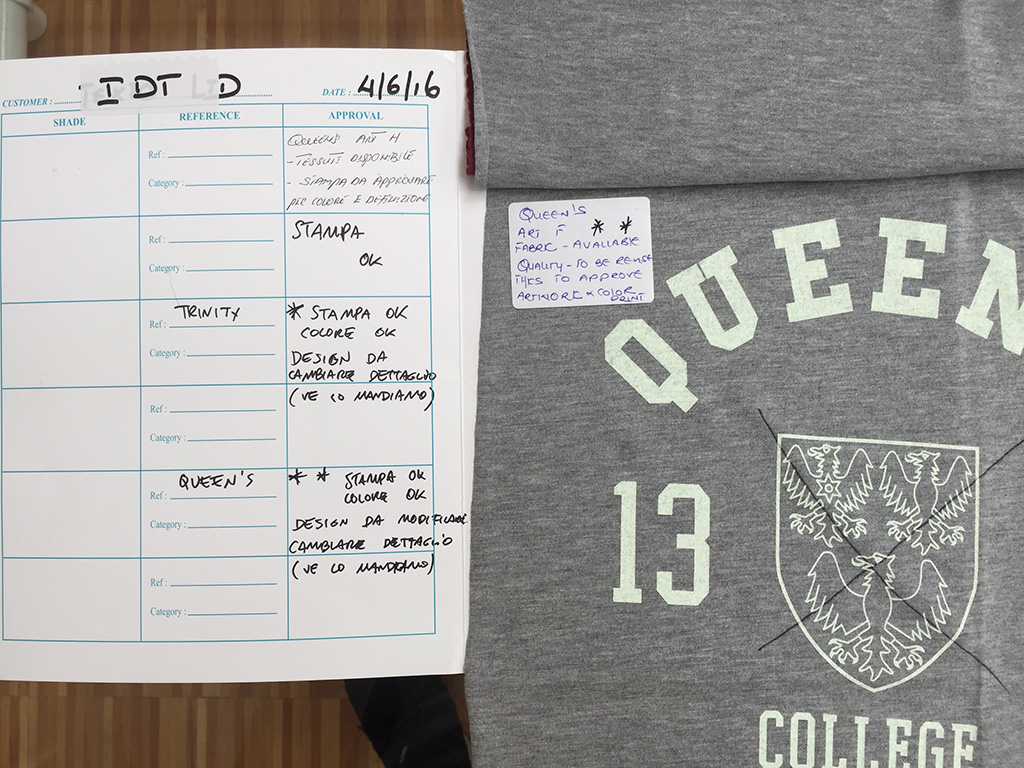 CUSTOMER : IDT LTD
DATE : 4/6/16
SHADE
REFERENCE
APPROVAL
Ref :
Category :
QUEENS' ART H
- TESSUTI DISPONIBILE
- STAMPA DA APPROVARE
PER COLORE E DEFINIZIONE
Ref :
Category :
STAMPA
OK
TRINITY
Ref :
Category :
* STAMPA OK
COLORE OK
DESIGN DA
CAMBIARE DETTAGLIO
Ref :
Category :
(VE LO MANDIAMO)
QUEEN'S
Ref :
Category :
* * STAMPA OK
COLORE OK
DESIGN DA MODIFICARE
CAMBIARE DETTAGLIO
Ref :
Category :
(VE LO MANDIAMO)
QUEEN'S
ART F * *
FABRIC - AVAILABLE
QUALITY - TO BE
TO APPROVE
ARTWORK & COLOR
PRINT
QUEEN
13
COLLEGE